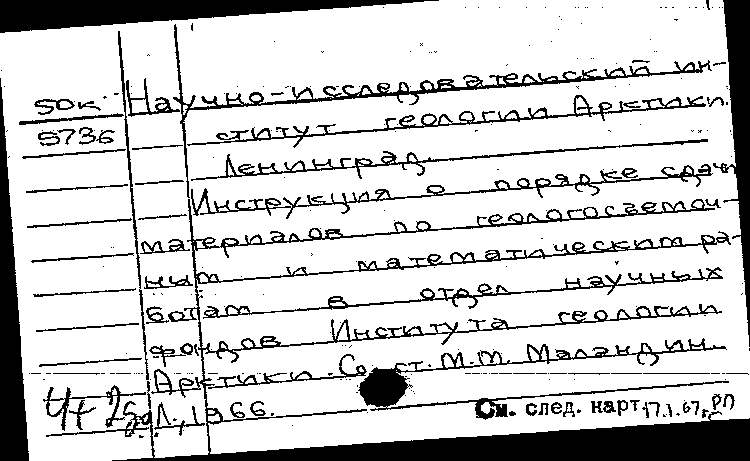 50к Научно-исследовательский ин-
5736 ститут геологии Арктики.
Ленинград.
Инструкция о порядке сдачи
материалов по геологосъемоч-
ным и математическим ра-
ботам в отдел научных
фондов Института геологии
Арктики. Сост. М.М. Маландин.
Л., 1966.
См. след. карт. 17.1.67г.